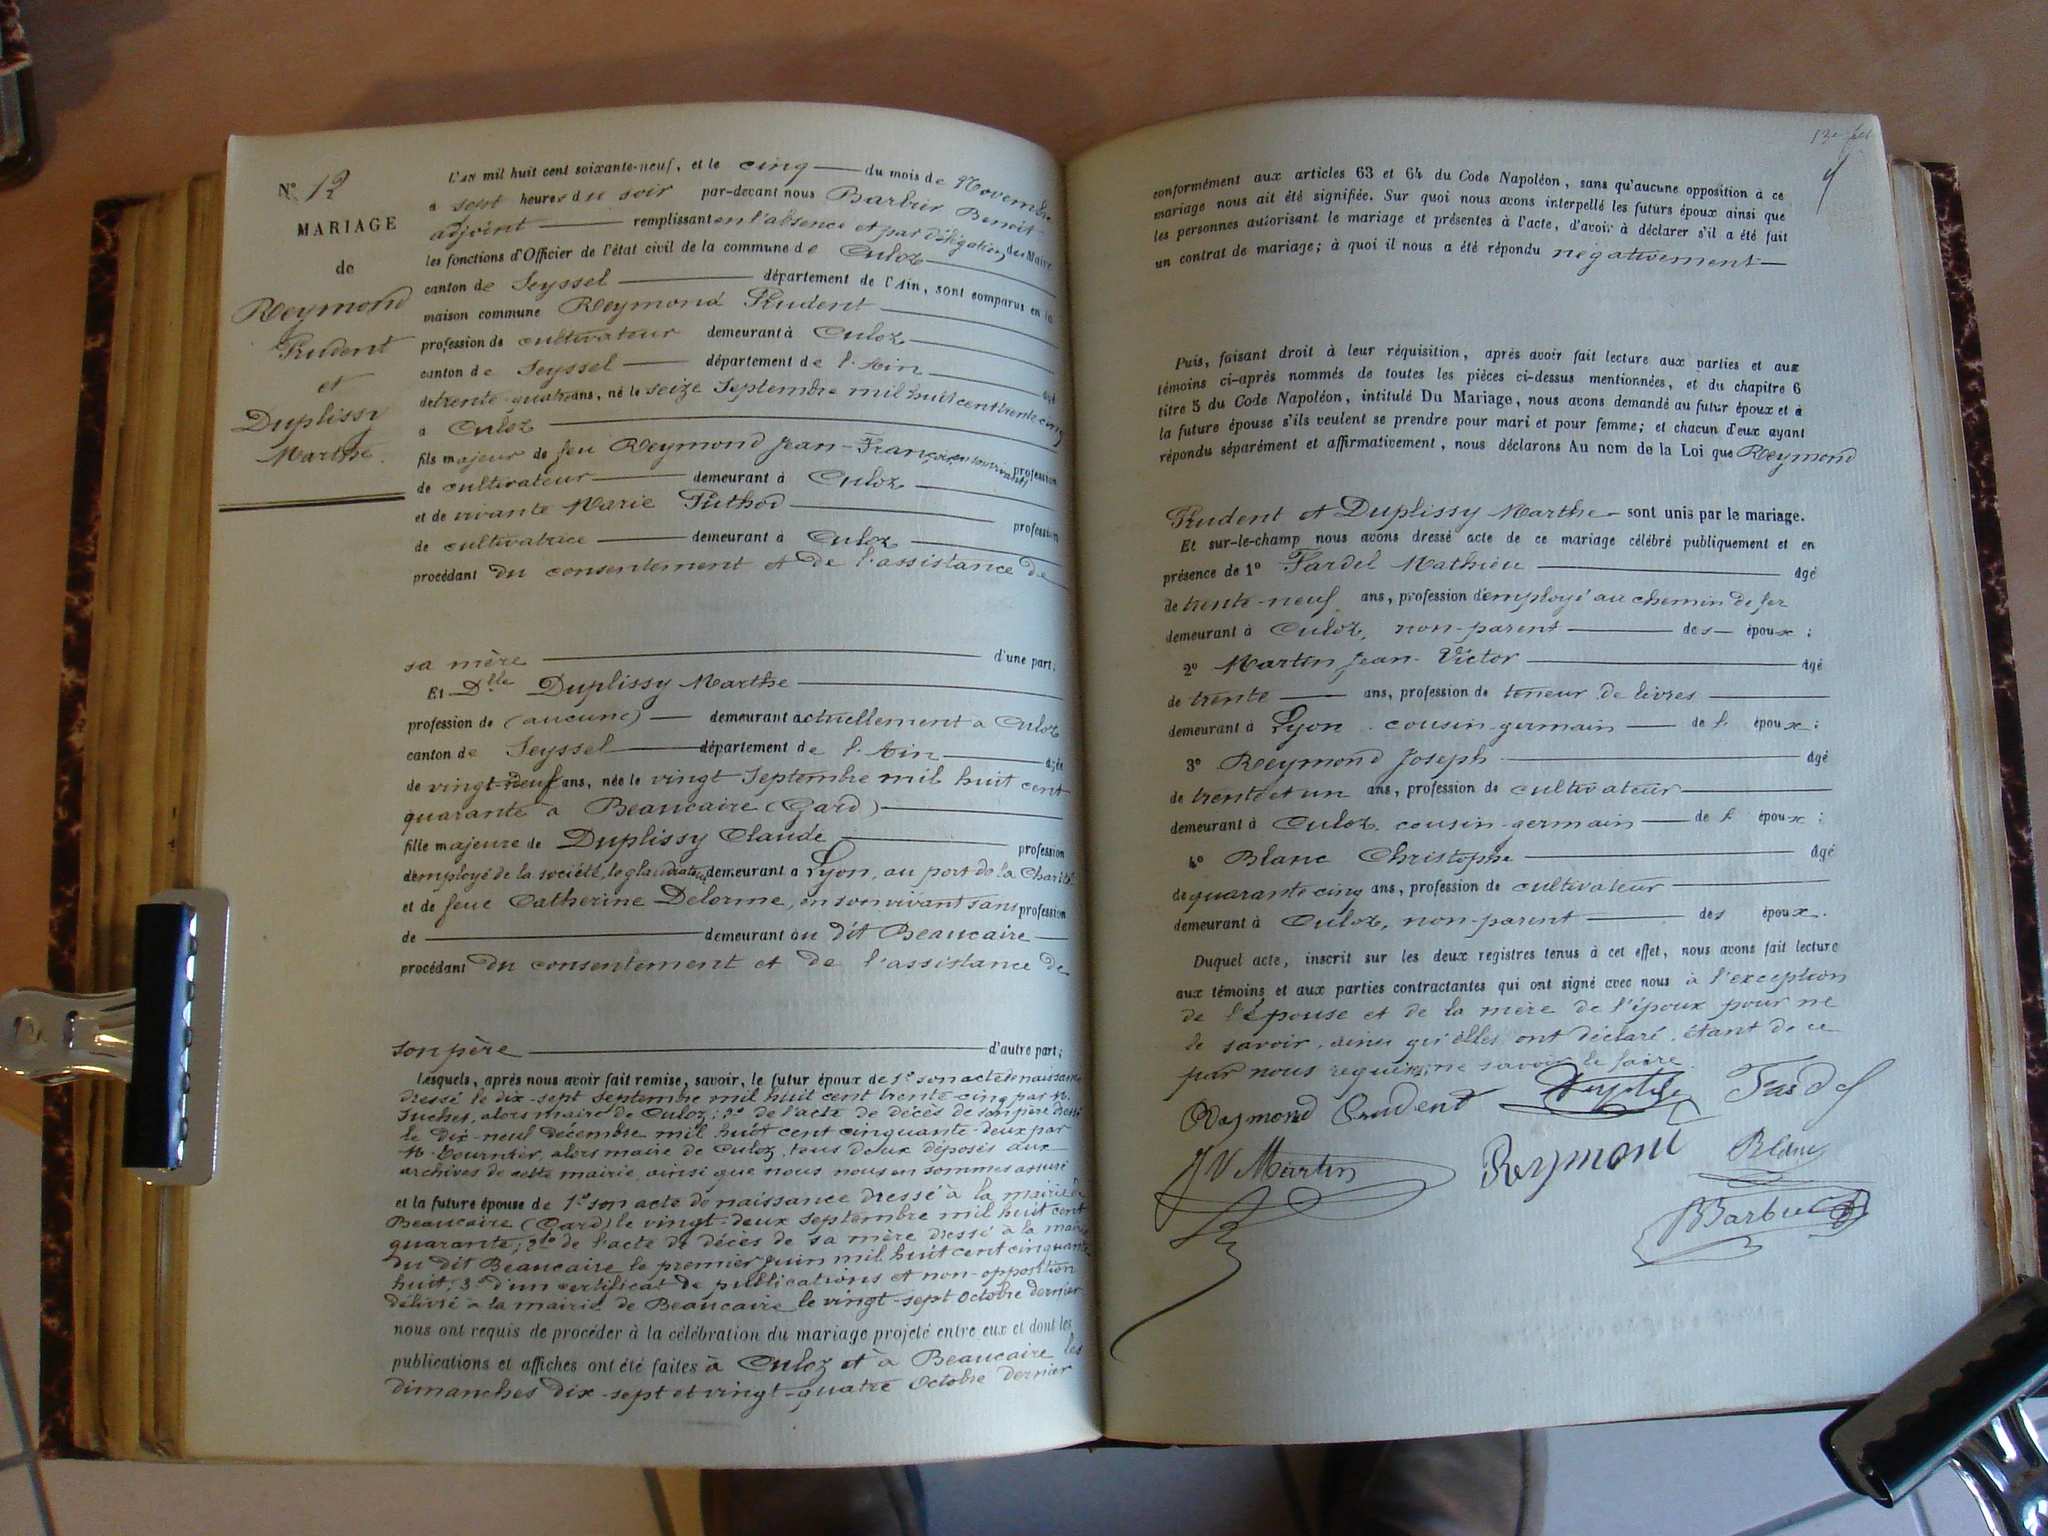 N° 12
MARIAGE
de
Reymond
Prudent
et
Duplissy
Marthe.
L'AN mil huit cent soixante-neuf, et le cinq du mois de Novembre
à sept heures du soir par-devant nous Barbier Benoit
adjoint remplissant en l'absence et par délégation, du Maire
les fonctions d'Officier de l'état civil de la commune de Culoz
canton de Seyssel département de l'Ain, sont comparus en la
maison commune Reymond Prudent
profession de cultivateur demeurant à Culoz
canton de Seyssel département de l'Ain âgé
de trente-quatre ans, né le seize Septembre mil huit cent trente cinq
à Culoz
fils majeur de feu Reymond Jean-François, en son vivant profession
de cultivateur demeurant à Culoz
et de vivante Marie Puthod profession
de cultivatrice demeurant à Culoz
procédant du consentement et de l'assistance de
sa mère d'une part;
Et Dlle Duplissy Marthe
profession de (aucune) demeurant actuellement à Culoz
canton de Seyssel département de l'Ain âgée
de vingt-neuf ans, née le vingt Septembre mil huit cent
quarante à Beaucaire (Gard)
fille majeure de Duplissy Claude profession
d'employé de la société, demeurant à Lyon, au port de la Charité
et de feue Catherine Delorme, en son vivant sans profession
de demeurant au dit Beaucaire
procédant du consentement et de l'assistance de
son père d'autre part;
Lesquels, après nous avoir fait remise, savoir, le futur époux de 1° son acte de naissance
dressé le dix-sept septembre mil huit cent trente-cinq par M.
alors maire de Culoz; 2° de l'acte de décès de son père dressé
le dix-neuf décembre mil huit cent cinquante-deux par
M. Tournier, alors maire de Culoz, tous deux déposés aux
archives de cette mairie, ainsi que nous nous en sommes assuré
et la future épouse de 1° son acte de naissance dressé à la mairie de
Beaucaire (Gard) le vingt-deux septembre mil huit cent
quarante; 2° de l'acte de décès de sa mère dressé à la mairie
du dit Beaucaire le premier Juin mil huit cent cinquante
huit; 3° d'un certificat de publications et non-opposition
délivré à la mairie de Beaucaire le vingt-sept Octobre dernier
nous ont requis de procéder à la célébration du mariage projeté entre eux et dont les
publications et affiches ont été faites à Culoz et à Beaucaire les
dimanches dix-sept et vingt-quatre Octobre dernier
conformément aux articles 63 et 64 du Code Napoléon, sans qu'aucune opposition à ce
mariage nous ait été signifiée. Sur quoi nous avons interpellé les futurs époux ainsi que
les personnes autorisant le mariage et présentes à l'acte, d'avoir à déclarer s'il a été fait
un contrat de mariage; à quoi il nous a été répondu négativement
Puis, faisant droit à leur réquisition, après avoir fait lecture aux parties et aux
témoins ci-après nommés de toutes les pièces ci-dessus mentionnées, et du chapitre 6
titre 5 du Code Napoléon, intitulé Du Mariage, nous avons demandé au futur époux et à
la future épouse s'ils veulent se prendre pour mari et pour femme; et chacun d'eux ayant
répondu séparément et affirmativement, nous déclarons Au nom de la Loi que Reymond
Prudent et Duplissy Marthe sont unis par le mariage.
Et sur-le-champ nous avons dressé acte de ce mariage célébré publiquement et en
présence de 1° Fardel Mathieu âgé
de trente-neuf ans, profession d'employé au chemin de fer
demeurant à Culoz, non-parent des époux;
2° Martin Jean-Victor âgé
de trente ans, profession de teneur de livres
demeurant à Lyon, cousin-germain de l'époux;
3° Reymond Joseph âgé
de trente et un ans, profession de cultivateur
demeurant à Culoz, cousin-germain de l'époux;
4° Blanc Christophe âgé
de quarante cinq ans, profession de cultivateur
demeurant à Culoz, non-parent des époux.
Duquel acte, inscrit sur les deux registres tenus à cet effet, nous avons fait lecture
aux témoins et aux parties contractantes qui ont signé avec nous à l'exception
de l'épouse et de la mère de l'époux pour ne
le savoir, ainsi qu'elles ont déclaré, étant de ce
par nous requises ne savoir le faire.
Reymond Prudent Duplissy Fardel
J V Martin Reymond Blanc
Barbier